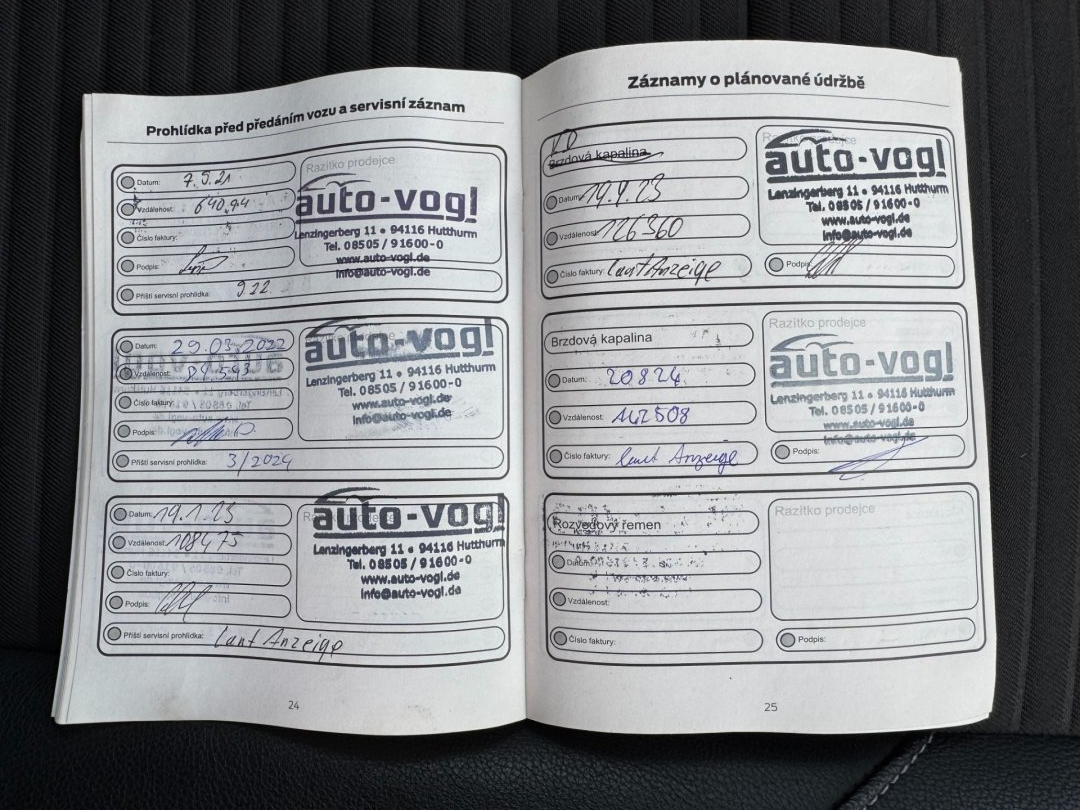 Prohlídka před předáním vozu a servisní záznam
Datum: 7.5.21
Vzdálenost: 64094
Číslo faktury:
Podpis:
Příští servisní prohlídka: 922
Razítko prodejce
auto-vogl
Lenzingerberg 11 • 94116 Hutthurm
Tel. 08505 / 91600-0
www.auto-vogl.de
info@auto-vogl.de
Datum: 29.03.2022
Vzdálenost:
Číslo faktury:
Podpis:
Příští servisní prohlídka: 3/2024
auto-vogl
Lenzingerberg 11 • 94116 Hutthurm
Tel. 08505 / 91600-0
www.auto-vogl.de
info@auto-vogl.de
Datum: 19.1.23
Vzdálenost: 108475
Číslo faktury:
Podpis:
Příští servisní prohlídka: laut Anzeige
auto-vogl
Lenzingerberg 11 • 94116 Hutthurm
Tel. 08505 / 91600-0
www.auto-vogl.de
info@auto-vogl.de
24
Záznamy o plánované údržbě
Brzdová kapalina
Datum: 19.4.23
Vzdálenost: 126360
Číslo faktury: laut Anzeige
Razítko prodejce
auto-vogl
Lenzingerberg 11 • 94116 Hutthurm
Tel. 08505 / 91600-0
www.auto-vogl.de
info@auto-vogl.de
Podpis:
Brzdová kapalina
Datum: 20.8.24
Vzdálenost: 142508
Číslo faktury: laut Anzeige
Razítko prodejce
auto-vogl
Lenzingerberg 11 • 94116 Hutthurm
Tel. 08505 / 91600-0
www.auto-vogl.de
info@auto-vogl.de
Podpis:
Rozvodový řemen
Datum:
Vzdálenost:
Číslo faktury:
Razítko prodejce
Podpis:
25